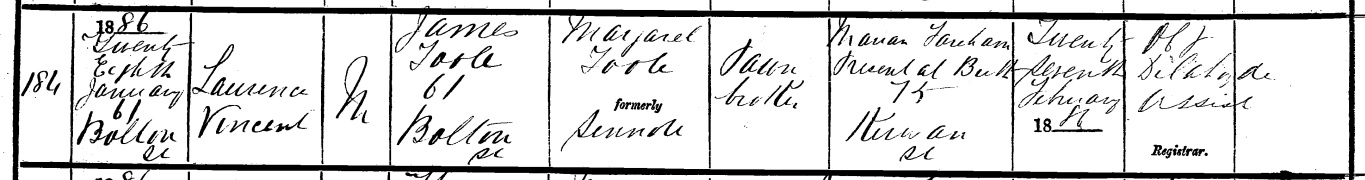 184
1886
Twenty
Eighth
January
61
Bolton
St
Laurence
Vincent
M
James
Toole
61
Bolton
St
Margaret
Toole
formerly
Sennott
Pawn
broker
Marian Fareham
Present at Birth
75
Kirwan
St
Twenty
Seventh
February
1886
Assist
Registrar.